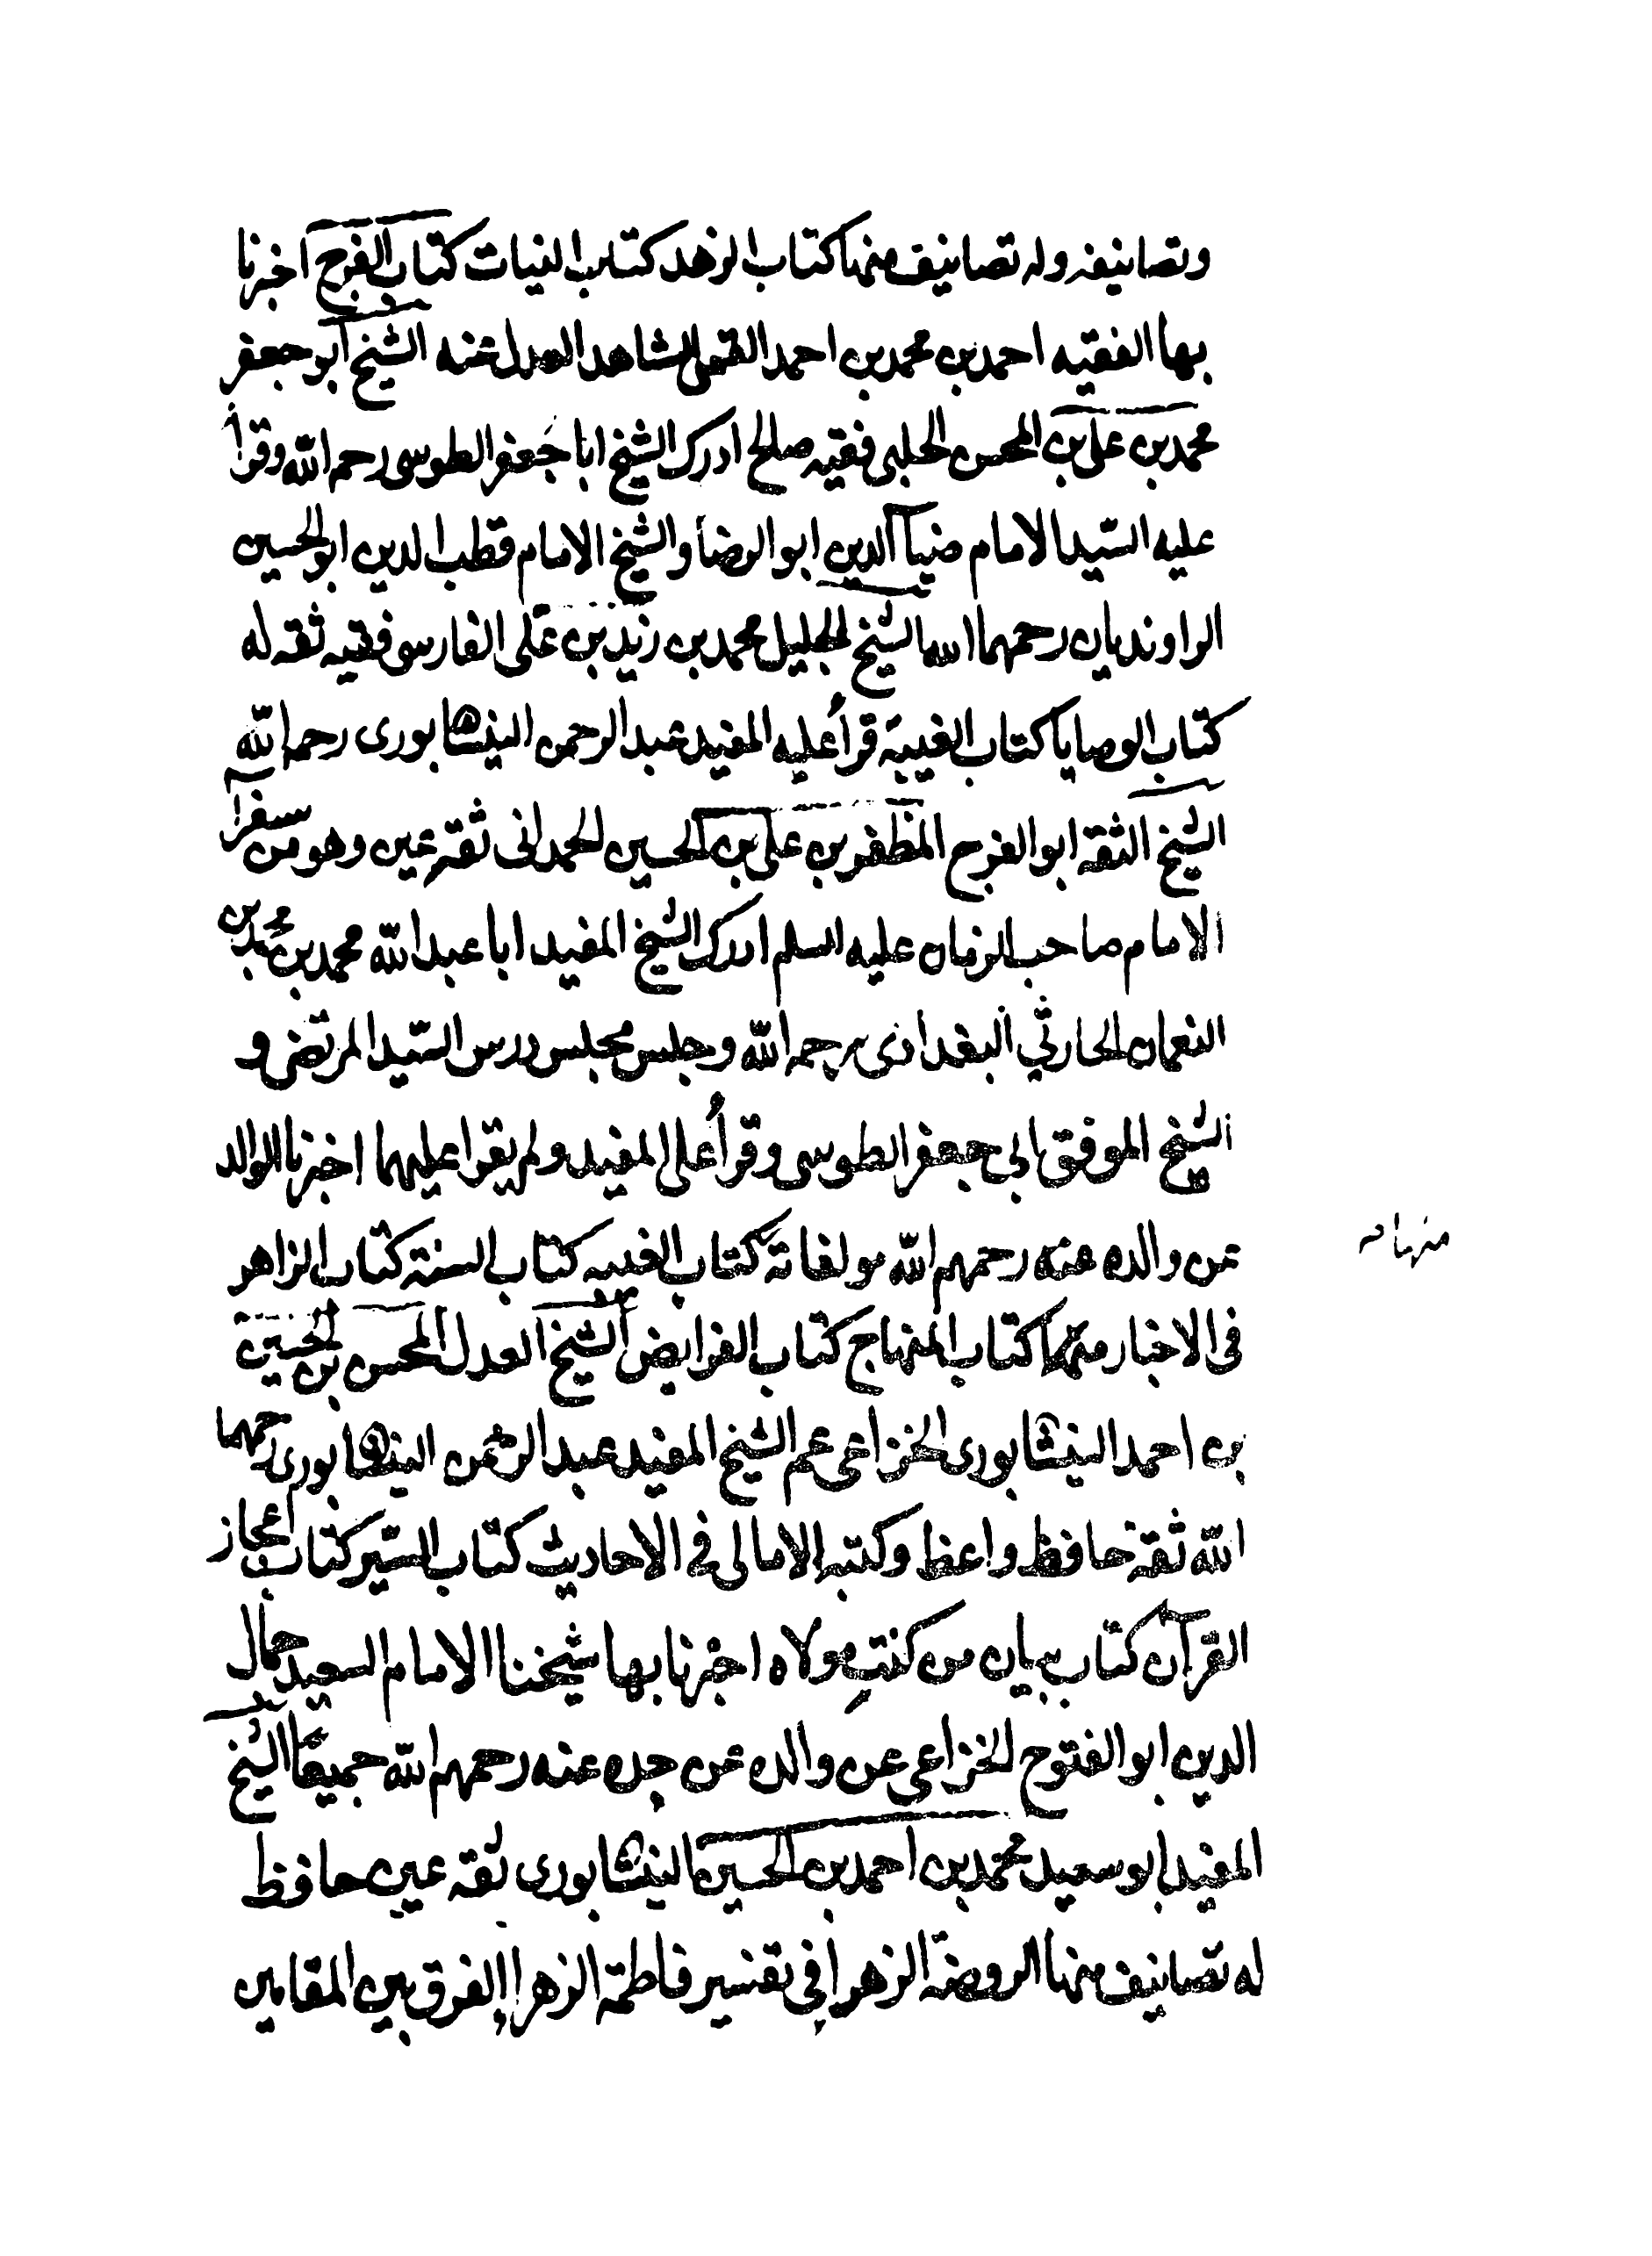 وتصانيفه وله تصانيف منها كتاب الزهد كتاب النيات كتاب الفرج اخبرنا
بها الفقيه احمد بن محمد بن احمد القمي الشاهد العدل عنه الشيخ ابو جعفر
محمد بن علي بن المحسن الحلبي فقيه صالح ادرك الشيخ ابا جعفر الطوسى رحمه الله وقرأ
عليه السّيد الامام ضيآ الدين ابو الرضا والشيخ الامام قطب الدين ابو الحسين
الراونديان رحمهما الله الشيخ الجليل محمد بن زيد بن على الفارسى فقيه ثقه له
كتاب الوصايا كتاب الغيبة قرأ عليه المفيد عبد الرحمن النيشابورى رحمه الله
الشيخ الثقه ابو الفرج المظفر بن على بن الحسين الحمدانى ثقة عين وهو من سفرآ
الامام صاحب الزمان عليه السلم ادرك الشيخ المفيد ابا عبد الله محمد بن محمد بن
النعمان الحارثي البغدادى رحمه الله وجلس مجلس درس السّيد المرتضى و
الشيخ الموفق ابى جعفر الطوسى وقرأ على المفيد ولم يقرا عليهما اخبرنا الوالد
عن والده عنه رحمهم الله مولفاته كتاب الغيبه كتاب السنة كتاب الزاهر
فى الاخبار منها كتاب المنهاج كتاب الفرايض الشيخ العدل المحسن بن الحسين
بن احمد النيشابورى الخزاعى عم الشيخ المفيد عبد الرحمن النيشابورى رحمهما
الله ثقة حافظ واعظ وكتبه الامالى في الاحاديث كتاب السّير كتاب اعجاز
القرآن كتاب بيان من كنت مولاه اخبرنا بها شيخنا الامام السعيد جمال
الدين ابو الفتوح الخزاعى عن والده عن جده عنه رحمهم الله جميعًا الشيخ
المفيد ابو سعيد محمد بن احمد بن الحسين النيشابورى ثقه عين حافظ
له تصانيف منها الروضة الزهرا فى تفسير فاطمة الزهرا الفرق بين المقامين